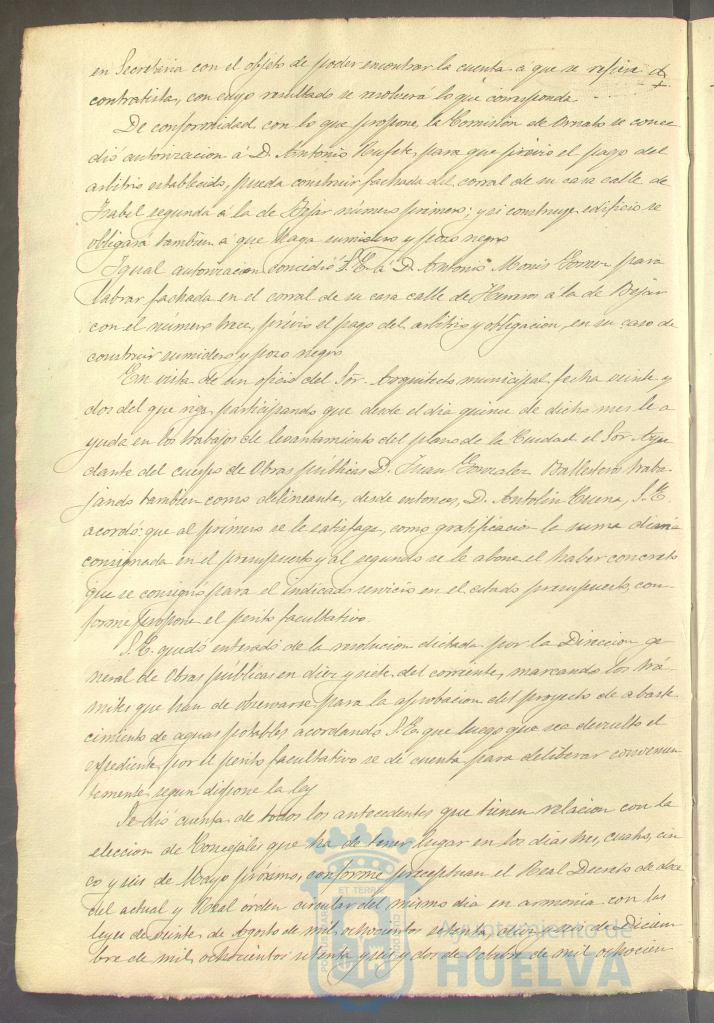 en Secretaria con el objeto de poder encontrar la cuenta a que se refiere el
contratista, con cuyo resultado se resolverá lo que corresponda
De conformidad con lo que propone la Comision de Ornato se conce
dió autorizacion á D. Antonio Rufete, para que prévio el pago del
arbitrio establecido, pueda construir fachada del corral de su casa calle de
Isabel segunda á la de Bejar número primero; y si construye edificio se
obligará tambien á que haga sumidero y pozo negro
Igual autorizacion concedió S. E. á D. Antonio Gomez para
labrar fachada en el corral de su casa calle de á la de Bejar
con el número trece, prévio el pago del arbitrio y obligacion, en su caso de
construir sumidero y pozo negro
En vista de un oficio del Sor. Arquitecto municipal fecha veinte y
dos del que rige, participando que desde el dia quince de dicho mes le a
yuda en los trabajos de levantamiento del plano de la Ciudad el Sor. Ayu
dante del cuerpo de Obras públicas D. Juan Gonzalez Ballesteros traba
jando tambien como delineante, desde entonces, D. Antolin Cuena, S. E.
acordó: que al primero se le satisfaga, como gratificacion la suma diaria
consignada en el presupuesto y al segundo se le abone el haber concreto
que se consignó para el indicado servicio en el citado presupuesto, con
forme propone el perito facultativo.
S. E. quedó enterado de la resolucion dictada por la Direccion ge
neral de Obras públicas en diez y siete del corriente, marcando los trá
mites que han de observarse para la aprobacion del proyecto de abaste
cimiento de aguas potables acordando S. E. que luego que sea devuelto el
expediente por el perito facultativo se de cuenta para deliberar convenien
temente segun dispone la ley
Se dió cuenta de todos los antecedentes que tienen relacion con la
eleccion de Concejales que ha de tener lugar en los dias tres, cuatro, cin
co y seis de Mayo próximo, conforme preceptuan el Real Decreto de doce
del actual y Real órden circular del mismo dia en armonia con las
leyes de veinte de Agosto de mil ochocientos setenta, diez y seis de Diciem
bre de mil ochocientos setenta y seis y dos de Octubre de mil ochocien
ET TERRAE
Ayuntamiento de
HUELVA